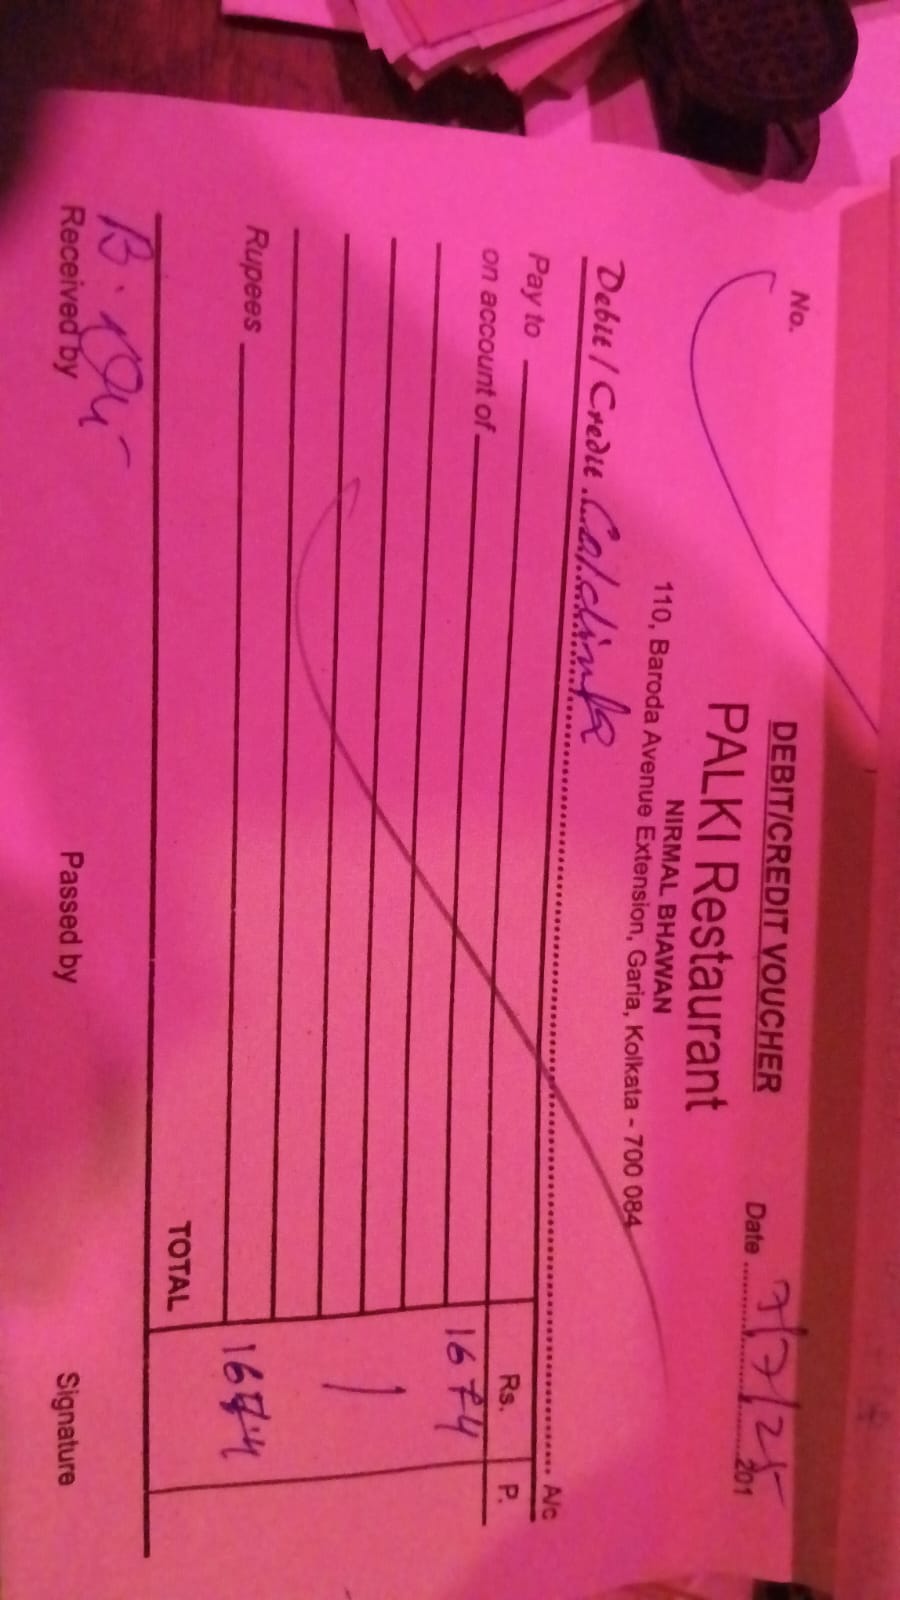 DEBIT/CREDIT VOUCHER
No.
Date 7/7/25 201
PALKI Restaurant
NIRMAL BHAWAN
110, Baroda Avenue Extension, Garia, Kolkata - 700 084
Debit / Credit A/c
Pay to Rs. P.
on account of 1674
Rupees 1674
TOTAL
Received by Passed by Signature